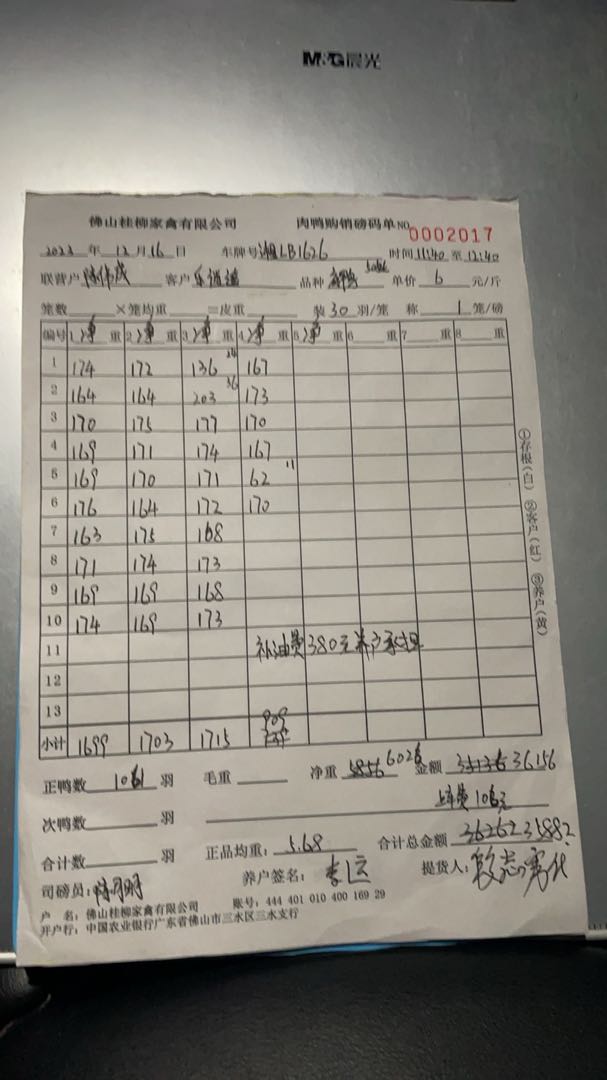 M&G晨光
佛山桂柳家禽有限公司 肉鸭购销磅码单 NO 0002017
2023 年 12 月 16 日 车牌号 湘LB1626 时间 11:40 至 12:40
联营户 客户 品种 单价 6 元/斤
笼数 ×笼均重 =皮重 装 30 羽/笼 称 1 笼/磅
编号 1 净 重 2 净 重 3 净 重 4 净 重 5 净 重 6 重 7 重 8 重
1 174 172 136 24 167
2 164 164 203 36 173
3 170 175 177 170
4 169 171 174 167
5 169 170 171 62 11
6 176 164 172 170
7 163 175 168
8 171 174 173
9 169 169 168
10 174 169 173
11 补油费380元养户承担
12
13
小计 1699 1703 1715 909
正鸭数 1061 羽 毛重 净重 5856 6026 金额 35136 36156
次鸭数 羽 上车费106元
合计数 羽 正品均重: 5.68 合计总金额 36262 35882
司磅员: 养户签名: 提货人:
户 名: 佛山桂柳家禽有限公司 账号: 444 401 010 400 169 29
开户行: 中国农业银行广东省佛山市三水区三水支行
①存根(白) ②客户(红) ③养户(黄)